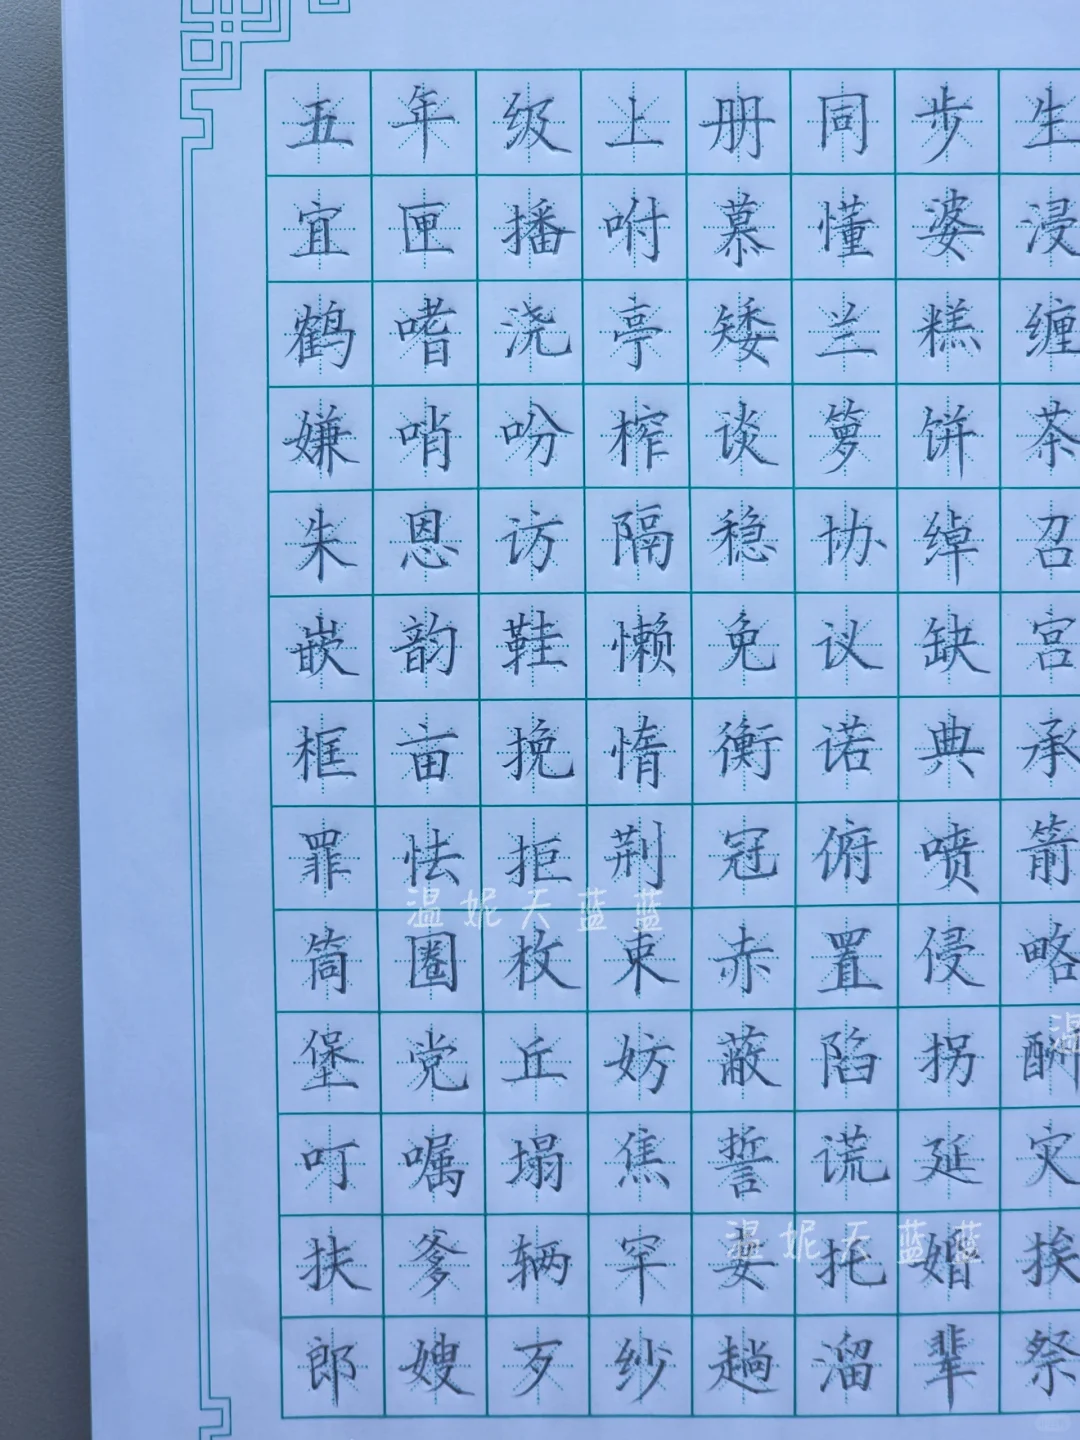 五年级上册同步生
宜匣播咐慕懂婆浸
鹤嗜浇亭矮兰糕缠
嫌哨吩榨谈箩饼茶
朱恩访隔稳协绰召
嵌韵鞋懒免议缺宫
框亩挽惰衡诺典承
罪怯拒荆冠俯喷箭
温妮天蓝蓝
筒圈枚束赤置侵略
堡党丘妨蔽陷拐酬
叮嘱塌焦誓谎延灾
扶爹辆罕妻托婚挨
温妮天蓝蓝
郎嫂歹纱趟溜辈祭